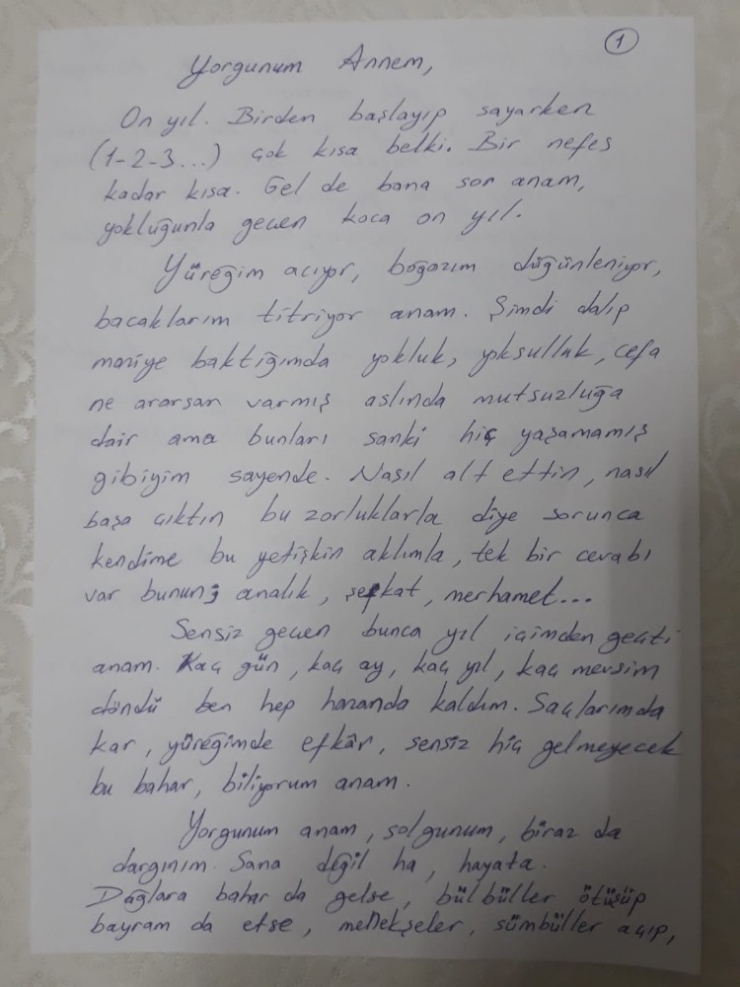 1
Yorgunum Annem,
On yıl. Birden başlayıp sayarken
(1-2-3...) çok kısa belki. Bir nefes
kadar kısa. Gel de bana sor anam,
yokluğunla geçen koca on yıl.
Yüreğim acıyor, boğazım düğümleniyor,
bacaklarım titriyor anam. Şimdi dalıp
maziye baktığımda yokluk, yoksulluk, cefa
ne ararsan varmış aslında mutsuzluğa
dair ama bunları sanki hiç yaşamamış
gibiyim sayende. Nasıl alt ettin, nasıl
başa çıktın bu zorluklarla diye sorunca
kendime bu yetişkin aklımla, tek bir cevabı
var bunun; analık, şefkat, merhamet...
Sensiz geçen bunca yıl içimden geçti
anam. Kaç gün, kaç ay, kaç yıl, kaç mevsim
döndü ben hep hazanda kaldım. Saçlarımda
kar, yüreğimde efkâr, sensiz hiç gelmeyecek
bu bahar, biliyorum anam.
Yorgunum anam, solgunum, biraz da
dargınım. Sana değil ha, hayata.
Dağlara bahar da gelse, bülbüller ötüşüp
bayram da etse, menekşeler, sümbüller açıp,